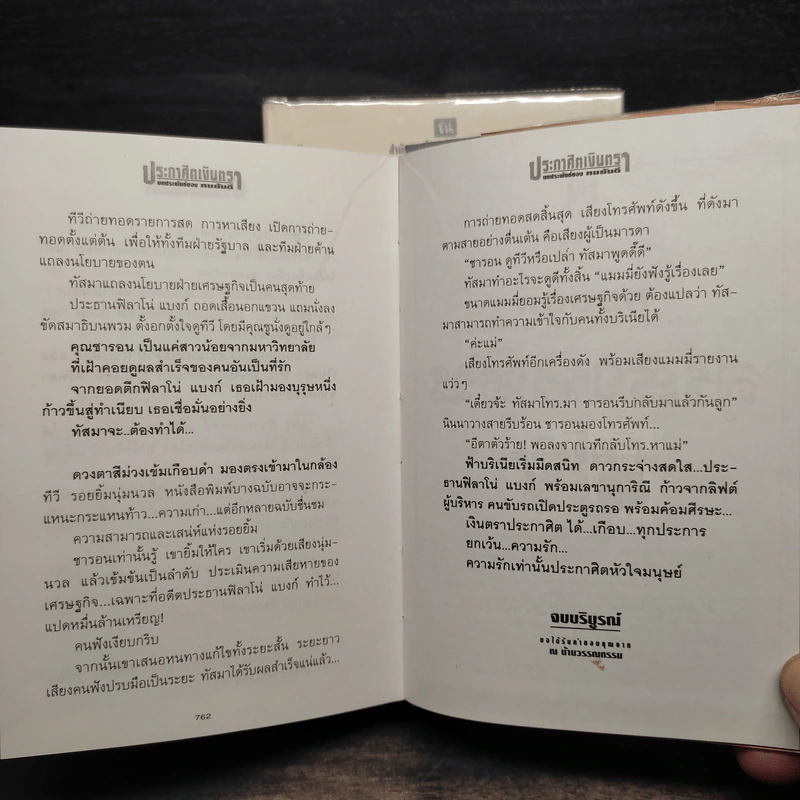 ณ
ประกาศิตเงินตรา
บทประพันธ์ของ ทมยันตี
ทีวีถ่ายทอดรายการสด การหาเสียง เปิดการถ่าย-
ทอดตั้งแต่ต้น เพื่อให้ทั้งทีมฝ่ายรัฐบาล และทีมฝ่ายค้าน
แถลงนโยบายของตน
ทัสมาแถลงนโยบายฝ่ายเศรษฐกิจเป็นคนสุดท้าย
ประธานฟิลาโน่ แบงก์ ถอดเสื้อนอกแขวน แถมนั่งลง
ขัดสมาธิบนพรม ตั้งอกตั้งใจดูทีวี โดยมีคุณซูนั่งดูอยู่ใกล้ๆ
คุณชารอน เป็นแค่สาวน้อยจากมหาวิทยาลัย
ที่เฝ้าคอยดูผลสำเร็จของคนอันเป็นที่รัก
จากยอดตึกฟิลาโน่ แบงก์ เธอเฝ้ามองบุรุษหนึ่ง
ก้าวขึ้นสู่ทำเนียบ เธอเชื่อมั่นอย่างยิ่ง
ทัสมาจะ..ต้องทำได้...
ดวงตาสีม่วงเข้มเกือบดำ มองตรงเข้ามาในกล้อง
ทีวี รอยยิ้มนุ่มนวล หนังสือพิมพ์บางฉบับอาจจะกระ-
แหนะกระแหนท้าว...ความเก่า...แต่อีกหลายฉบับชื่นชม
ความสามารถและเสน่ห์แห่งรอยยิ้ม
ชารอนเท่านั้นรู้ เขายิ้มให้ใคร เขาเริ่มด้วยเสียงนุ่ม-
นวล แล้วเข้มข้นเป็นลำดับ ประเมินความเสียหายของ
เศรษฐกิจ...เฉพาะที่อดีตประธานฟิลาโน่ แบงก์ ทำไว้...
แปดหมื่นล้านเหรียญ!
คนฟังเงียบกริบ
จากนั้นเขาเสนอหนทางแก้ไขทั้งระยะสั้น ระยะยาว
เสียงคนฟังปรบมือเป็นระยะ ทัสมาได้รับผลสำเร็จแน่แล้ว...
762
ประกาศิตเงินตรา
บทประพันธ์ของ ทมยันตี
การถ่ายทอดสดสิ้นสุด เสียงโทรศัพท์ดังขึ้น ที่ดังมา
ตามสายอย่างตื่นเต้น คือเสียงผู้เป็นมารดา
“ชารอน ดูทีวีหรือเปล่า ทัสมาพูดดี๊ดี”
ทัสมาทำอะไรจะดูดีทั้งสิ้น “แมมมี่ยังฟังรู้เรื่องเลย”
ขนาดแมมมี่ยอมรู้เรื่องเศรษฐกิจด้วย ต้องแปลว่า ทัส-
มาสามารถทำความเข้าใจกับคนทั้งบริเนียได้
“ค่ะแม่”
เสียงโทรศัพท์อีกเครื่องดัง พร้อมเสียงแมมมี่รายงาน
แว่วๆ
“เดี๋ยวจ้ะ ทัสมาโทร.มา ชารอนรีบกลับมาแล้วกันลูก”
นินนาวางสายรีบร้อน ชารอนมองโทรศัพท์...
“อีตาตัวร้าย! พอลงจากเวทีกลับโทร.หาแม่”
ฟ้าบริเนียเริ่มมืดสนิท ดาวกระจ่างสดใส...ประ-
ธานฟิลาโน่ แบงก์ พร้อมเลขานุการิณี ก้าวจากลิฟต์
ผู้บริหาร คนขับรถเปิดประตูรถรอ พร้อมค้อมศีรษะ...
เงินตราประกาศิต ได้...เกือบ...ทุกประการ
ยกเว้น...ความรัก...
ความรักเท่านั้นประกาศิตหัวใจมนุษย์
จบบริบูรณ์
ณ บ้านวรรณกรรม